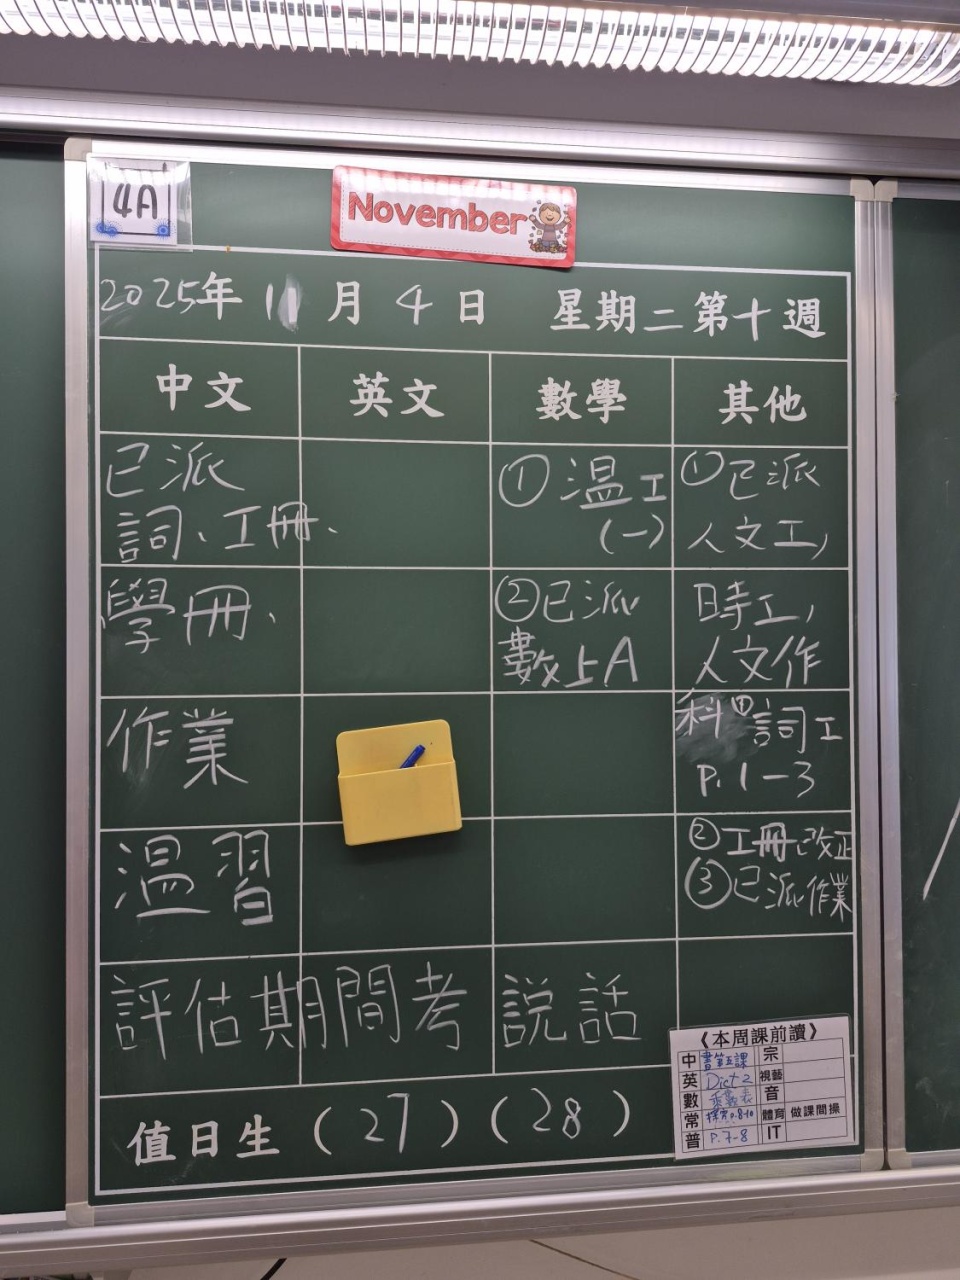 4A
November
2025年 11 月 4 日 星期二 第十週
中文 英文 數學 其他
已派
詞、工冊、
學冊、
作業
温習
① 温工
(一)
② 已派
數上A
① 已派
人文工,
時工,
人文作
科 詞工
P. 1-3
② 工冊改正
③ 已派作業
評估期間考 説話
值日生 (27) (28)
《本周課前讀》
中 書第五課 宗
英 Dict 2 視藝
數 乘數表 音
常 探究p.8-10 體育 做課間操
普 P.7-8 IT